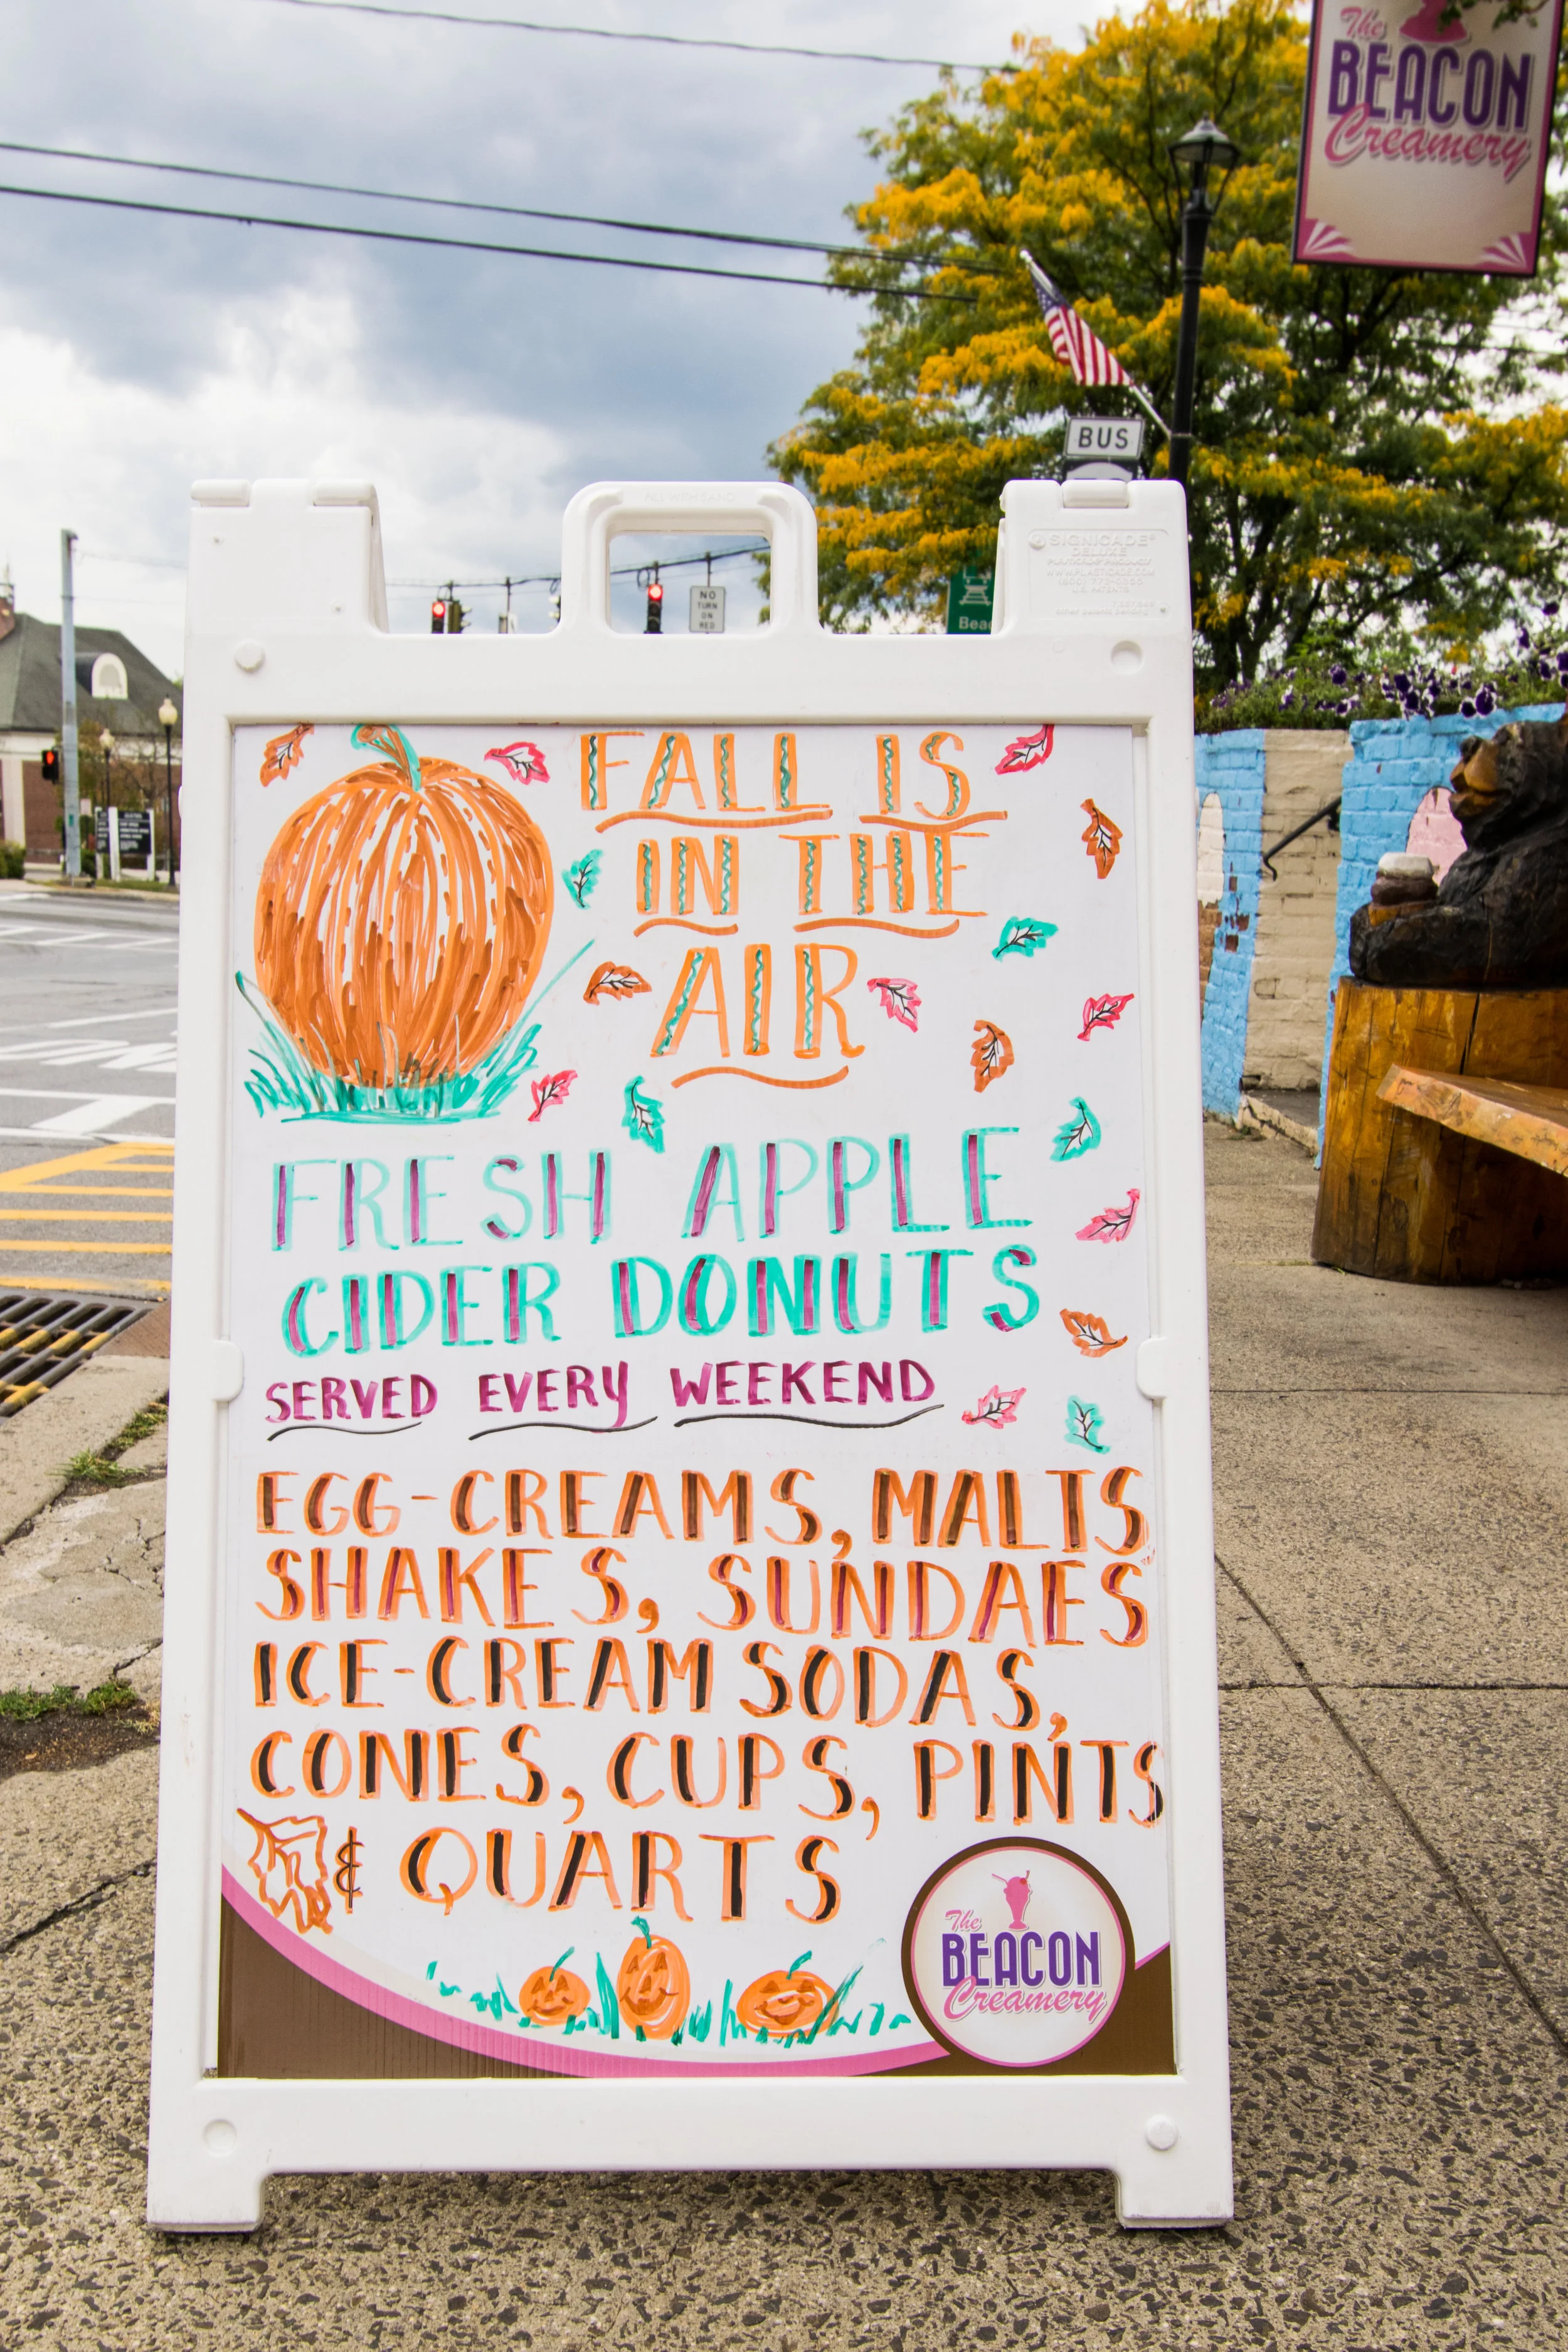 The
BEACON
Creamery
BUS
NO
TURN
ON
RED
Beac
SIGNICADE®
DELUXE
FALL IS
IN THE
AIR
FRESH APPLE
CIDER DONUTS
SERVED EVERY WEEKEND
EGG-CREAMS, MALTS
SHAKES, SUNDAES
ICE-CREAM SODAS,
CONES, CUPS, PINTS
& QUARTS
The
BEACON
Creamery